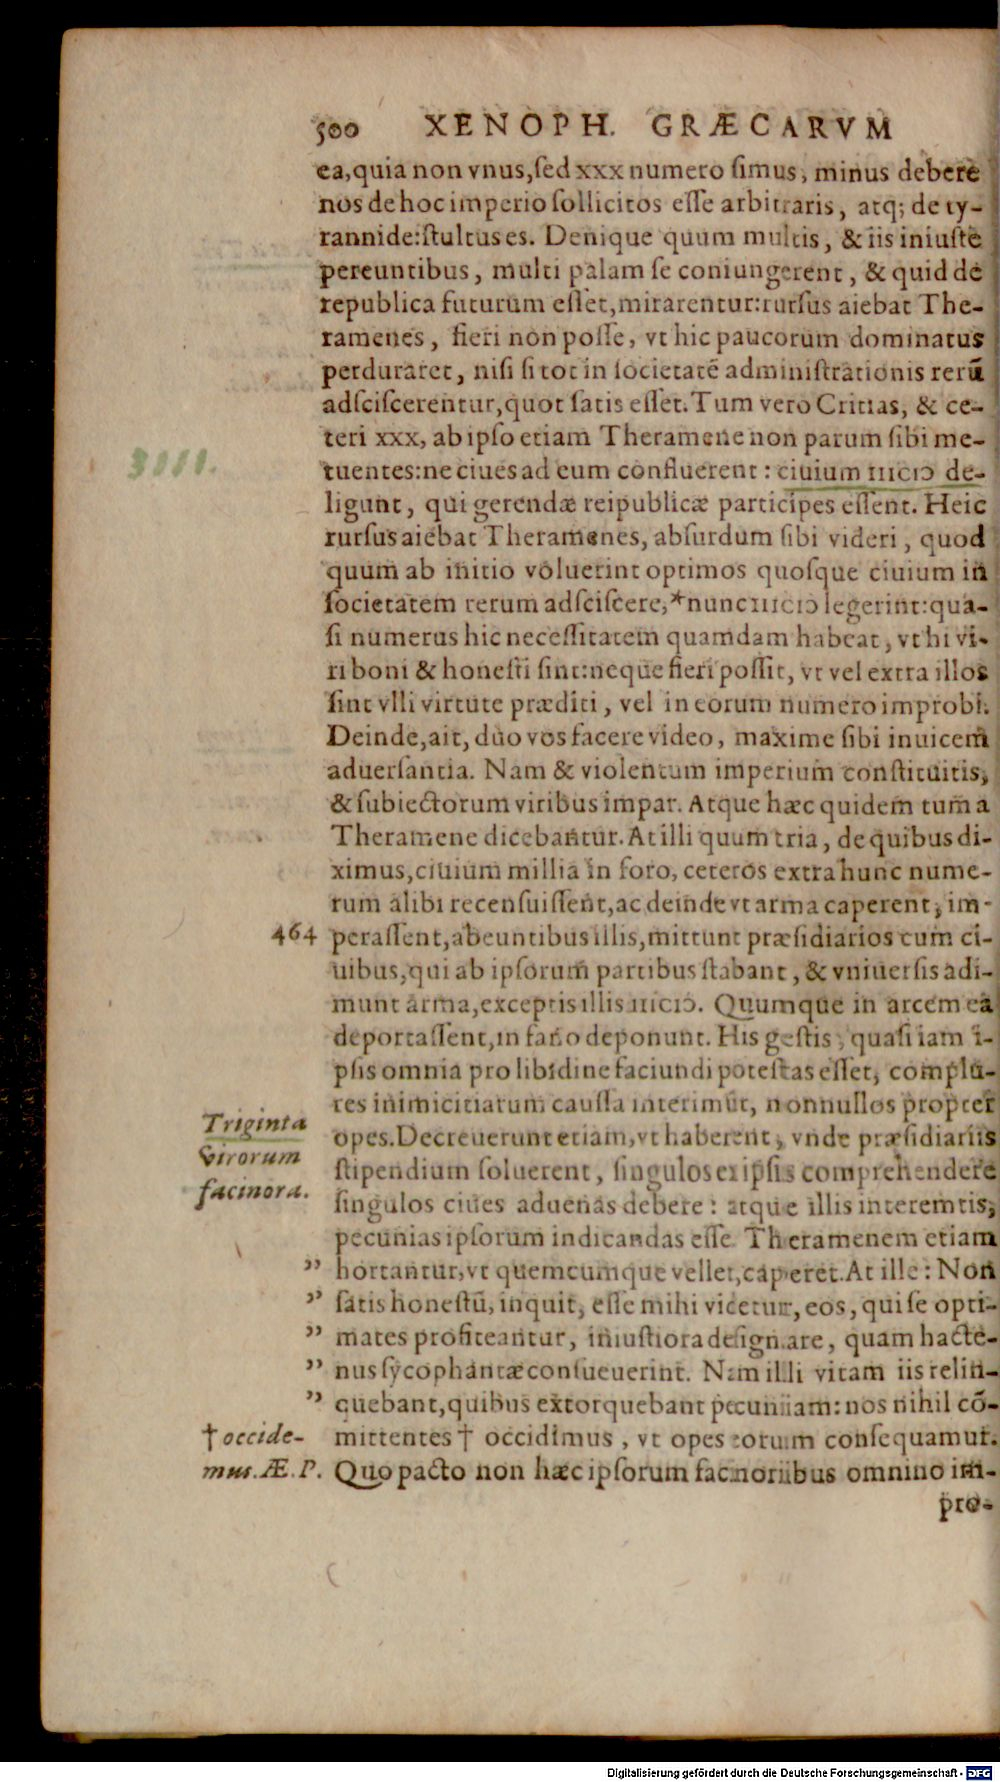 500 XENOPH. GRÆCARVM
ea,quia non vnus,sed xxx numero simus, minus debere
nos de hoc imperio sollicitos esse arbitraris, atq; de ty-
rannide:stultus es. Denique quum multis, & iis iniuste
pereuntibus, multi palam se coniungerent, & quid de
republica futurum esset,mirarentur:rursus aiebat The-
ramenes, fieri non posse, vt hic paucorum dominatus
perduraret, nisi si tot in societatē administrationis rerū
adsciscerentur,quot satis esset.Tum vero Critias, & ce-
teri xxx, ab ipso etiam Theramene non parum sibi me-
3111.
tuentes:ne ciues ad eum confluerent: ciuium IIICIↃ de-
ligunt, qui gerendæ reipublicæ participes essent. Heic
rursus aiebat Theramenes, absurdum sibi videri, quod
quum ab initio voluerint optimos quosque ciuium in
societatem rerum adsciscere,*nunc IIICIↃ legerint:qua-
si numerus hic necessitatem quamdam habeat, vt hi vi-
ri boni & honesti sint:neque fieri possit, vt vel extra illos
sint vlli virtute præditi, vel in eorum numero improbi.
Deinde,ait, duo vos facere video, maxime sibi inuicem
aduersantia. Nam & violentum imperium constituitis,
& subiectorum viribus impar. Atque hæc quidem tum a
Theramene dicebantur. At illi quum tria, de quibus di-
ximus,ciuium millia in foro, ceteros extra hunc nume-
rum alibi recensuissent,ac deinde vt arma caperent, im-
464 perassent,abeuntibus illis,mittunt præsidiarios cum ci-
uibus,qui ab ipsorum partibus stabant, & vniuersis adi-
munt arma,exceptis illis IIICIↃ. Quumque in arcem ea
deportassent,in fano deponunt. His gestis, quasi iam i-
psis omnia pro libidine faciundi potestas esset, complu-
res inimicitiarum caussa interimūt, nonnullos propter
Triginta
virorum
facinora.
opes.Decreuerunt etiam,vt haberent, vnde præsidiariis
stipendium soluerent, singulos ex ipsis comprehendere
singulos ciues aduenas debere: atque illis interemtis,
pecunias ipsorum indicandas esse. Theramenem etiam
" hortantur,vt quemcumque vellet,caperet.At ille: Non
" satis honestū, inquit, esse mihi videtur, eos, qui se opti-
" mates profiteantur, iniustiora designare, quam hacte-
" nus sycophantæ consueuerint. Nam illi vitam iis relin-
" quebant,quibus extorquebant pecuniam: nos nihil cō-
† occide-
mus. Æ. P.
mittentes † occidimus, vt opes eorum consequamur.
Quo pacto non hæc ipsorum facinoribus omnino im-
pro-
Digitalisierung gefördert durch die Deutsche Forschungsgemeinschaft - DFG